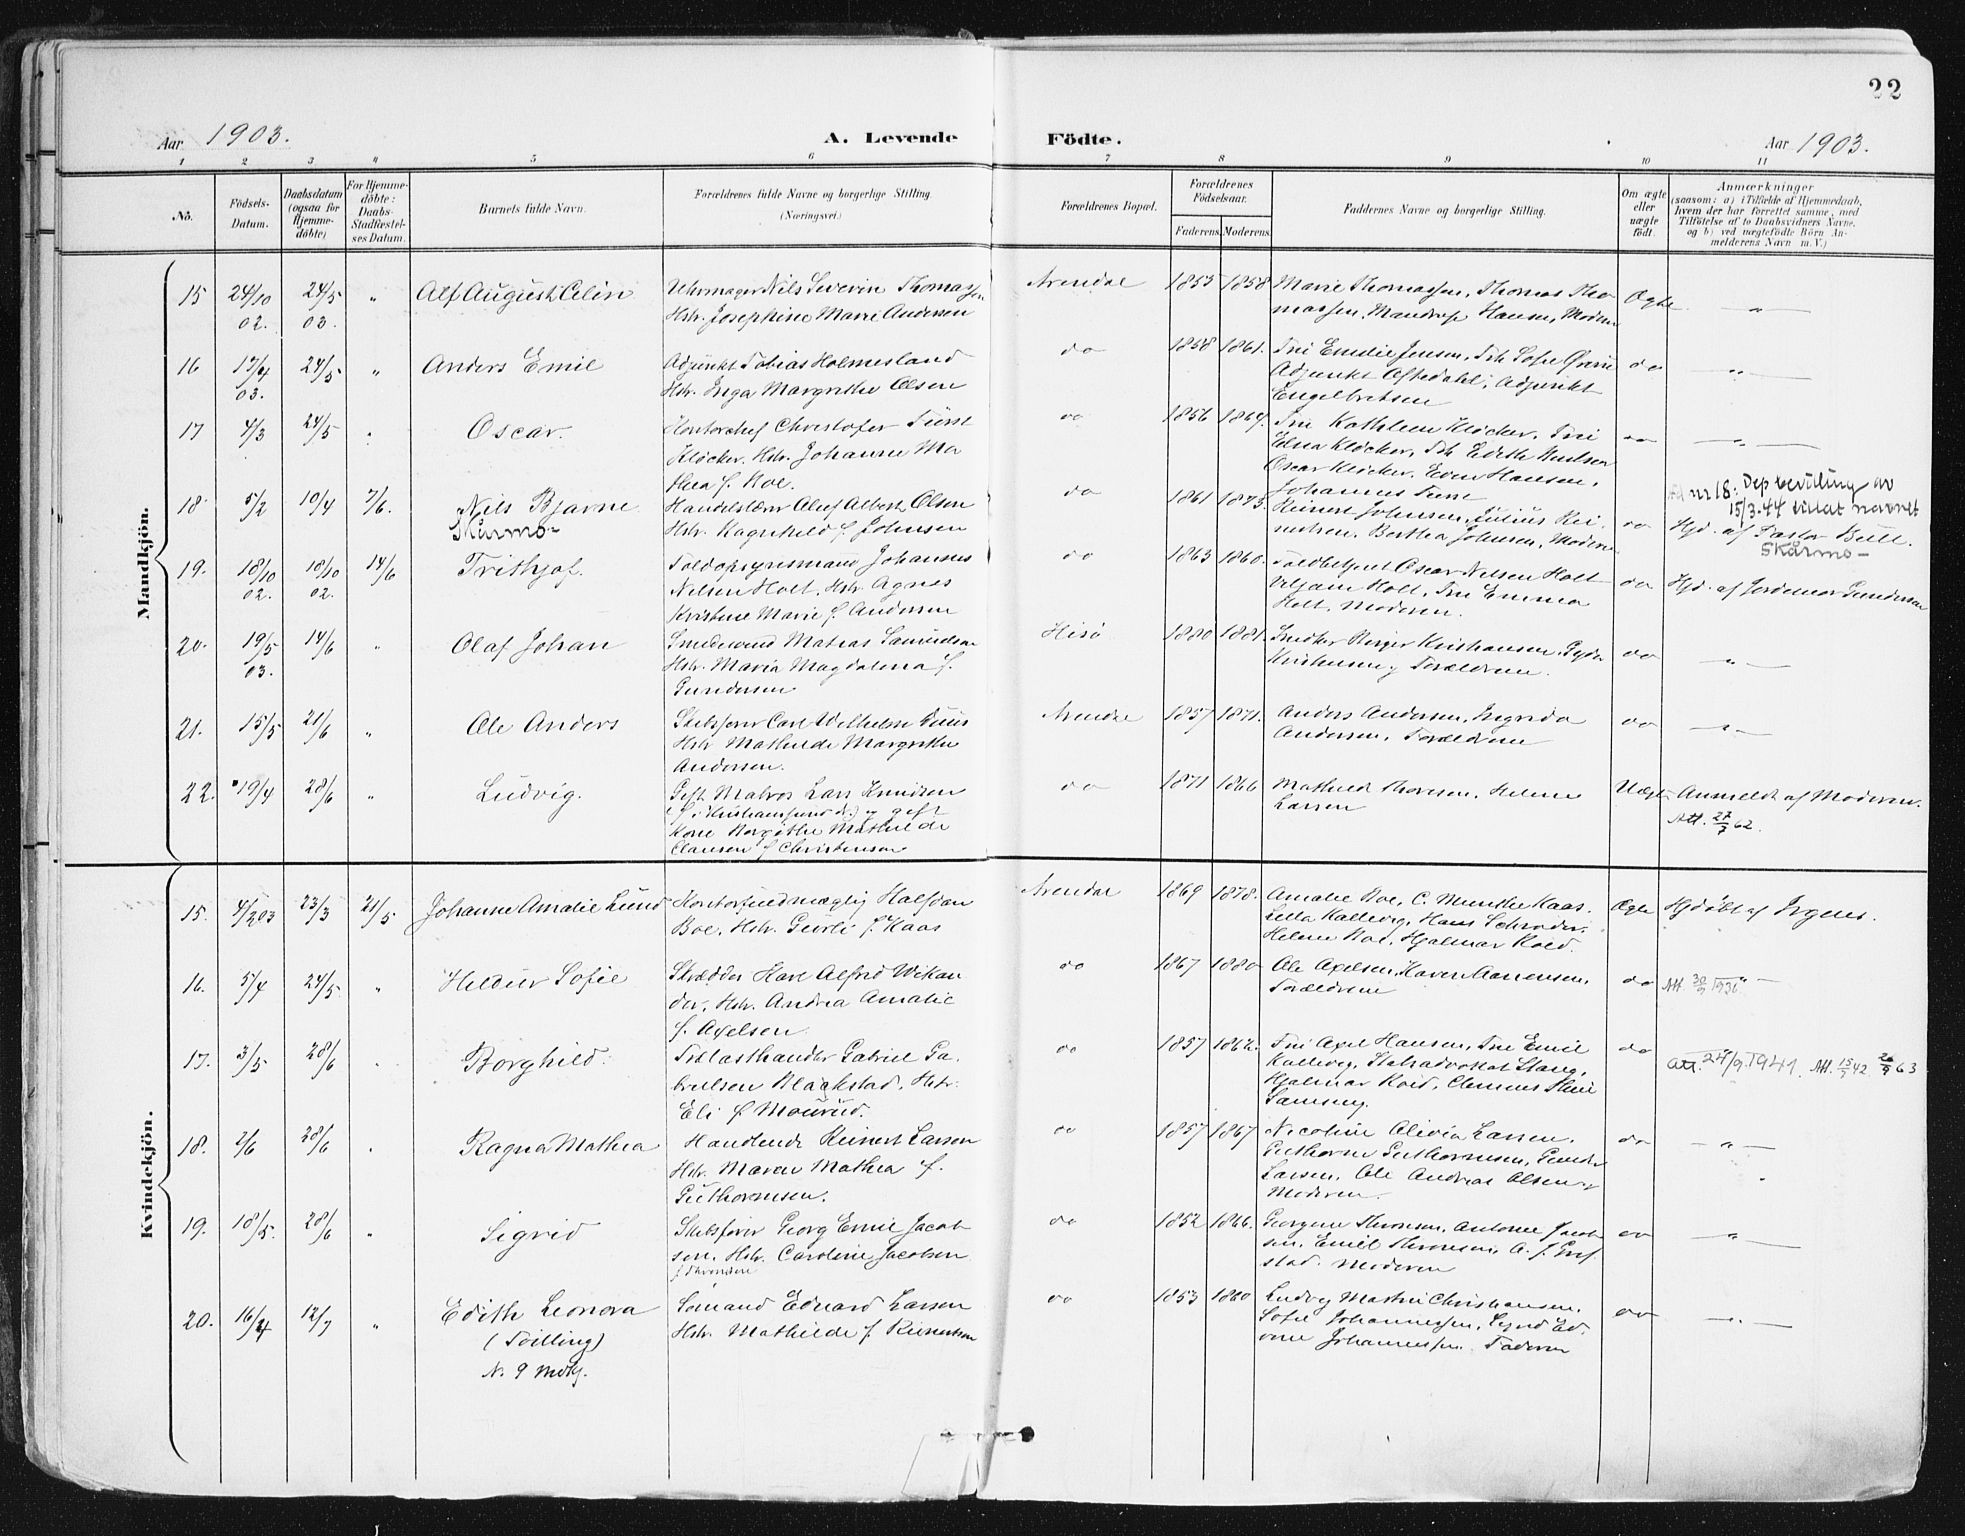 22
Aar 1903. A. Levende Födte. Aar 1903.
1 2 3 4 5 6 7 8 9 10 11
No. Födsels-Datum. Daabsdatum (ogsaa for Hjemme-döbte) For Hjemme-döbte: Daabs-Stadfæstel-ses Datum. Barnets fulde Navn. Forældrenes fulde Navne og borgerlige Stilling. (Næringsvei.) Forældrenes Bopæl. Forældrenes Födselsaar. Faderens. Moderens. Faddernes Navne og borgerlige Stilling. Om ægte eller uægte födt. Anmærkninger
(saasom: a) i Tilfælde af Hjemmedaab, hvem der har forrettet samme, med Tilföielse af to Daabsvidners Navne, og b) ved uægtefödte Börn An-melderens Navn m. V.)
Mandkjön.
15 24/10 02. 24/5 03. " Alf August Uhrmager Nils Severin Thomassen Arendal 1855 1858 Marie Thomassen, Thomas Tho-
Hstr. Josephine Marie Andersen massen, Hansen, Moderen Ægte "
16 13/4 03. 24/5 " Anders Emil Adjunkt Tobias Holmesland do 1858 1861. Emilie Jensen,
Hstr. Inga Margrethe Olsen Adjunkt Aftedahl, Adjunkt do "
Engelbretsen
17 4/3 24/5 " Oscar. Kontorchef Christofer Fürst do 1856 1864. Frk Kathleen Klöcker, Frk
Klöcker. Hstr. Johanne Ma Edna Klöcker, Edith do "
thea f. Boe. Oscar Klöcker, Hansen,
Johannes
18. 5/2 19/4 7/6. Nils Bjarne Handelsbrs Oluf Albert Olsen do 1861 1873. Reinert Johnsen, Julius Rei-
Skarmo- Hstr. Ragnhild f. Johnsen nertsen, Berthea Johnsen, Moderen do
nr 18: Dep bevilling av
15/3-44 tillat navnet
Hjd. af Pastor Bull.
Skarmo-
19. 18/10 02. 18/10 02. 14/6 Frithjof. Toldopsynsmand Johannes do 1863 1860. Toldbetjent Oscar Nilsen Holt
Nilsen Holt, Hstr. Agnes Holt, Frk Emma do Hjd. af Jordemor Gundersen
Kristine Marie f. Andersen Holt, Moderen.
20. 19/5 03. 14/6 " Olaf Johan Smedsvend Matias Samuelsen Hisö 1880 1881. Birger Kristiansen,
Hstr. Maria Magdalena f. Forældrene. do "
Gundersen
21. 15/5 21/6 " Ole Anders Skibsförer Carl Wilhelm Arendal 1857 1871. Anders Andersen, Ingrida
Hstr Mathilde Margrethe Andersen, Forældrene do "
Andersen.
22. 19/4 28/6 " Ludvig. Gift Matros Lars Knudsen do 1871 1866 Mathilde Helene Uægte Anmeldt af Moderen.
(f. i Kristiansund N.) og gift Larsen Att. 27/7 62.
Kone Mathilde
Clausen f Christensen
Kvindekjön.
15. 4/2 03 23/3 21/5 Johanne Amalie Lund Kontorfuldmægtig Halfdan Arendal 1869 1878. Amalie Boe, C. Munthe Kaas,
Boe, Hstr. f. Kaas Kallevig, Hans Schröder, Ægte Hjdöbt af Irgens.
Helene Boe, Hjalmar Koed.
16. 5/4 24/5 " Hildur Sofie Skrædder Karl Alfred Wikan do 1867 1880 Ole Axelsen, Karen
der, Hstr. Andrea Amalie Forældrene do Att 30/9 1936
f. Axelsen
17. 3/5 28/6 " Borghild. Trælasthandler Gabriel Ga- do 1857 1862. Axel Hansen, Emil do
brielsen Blackstad, Hstr. Kallevig, Stang, Att. 24/9 1941. Att. 15/7 42 63
Eli f Hjalmar Koed,
18. 2/6 28/6 " Ragna Mathea Handlende Reinert Larsen do 1857 1867 Nicoline Olivia Larsen,
Hstr. Maren Mathea f. Guthorm Guthormsen, Gunder do "
Guthormsen. Larsen, Ole Andreas Olsen og
Moderen.
19. 18/5. 28/6 " Sigrid Skibsförer Georg Emil Jacob do 1852 1866. Antonie Jacob
sen, Hstr. Caroline Jacobsen sen, Emil do "
stad. Moderen
20. 16/4 12/7 " Edith Leonora Sömand Edvard Larsen do 1853 1860 Ludvig Christiansen,
(Tvilling) Hstr. Mathilde f. Reinertsen Sofie Johannessen, do "
N. 9 Mdkj. Johannessen. Faderen